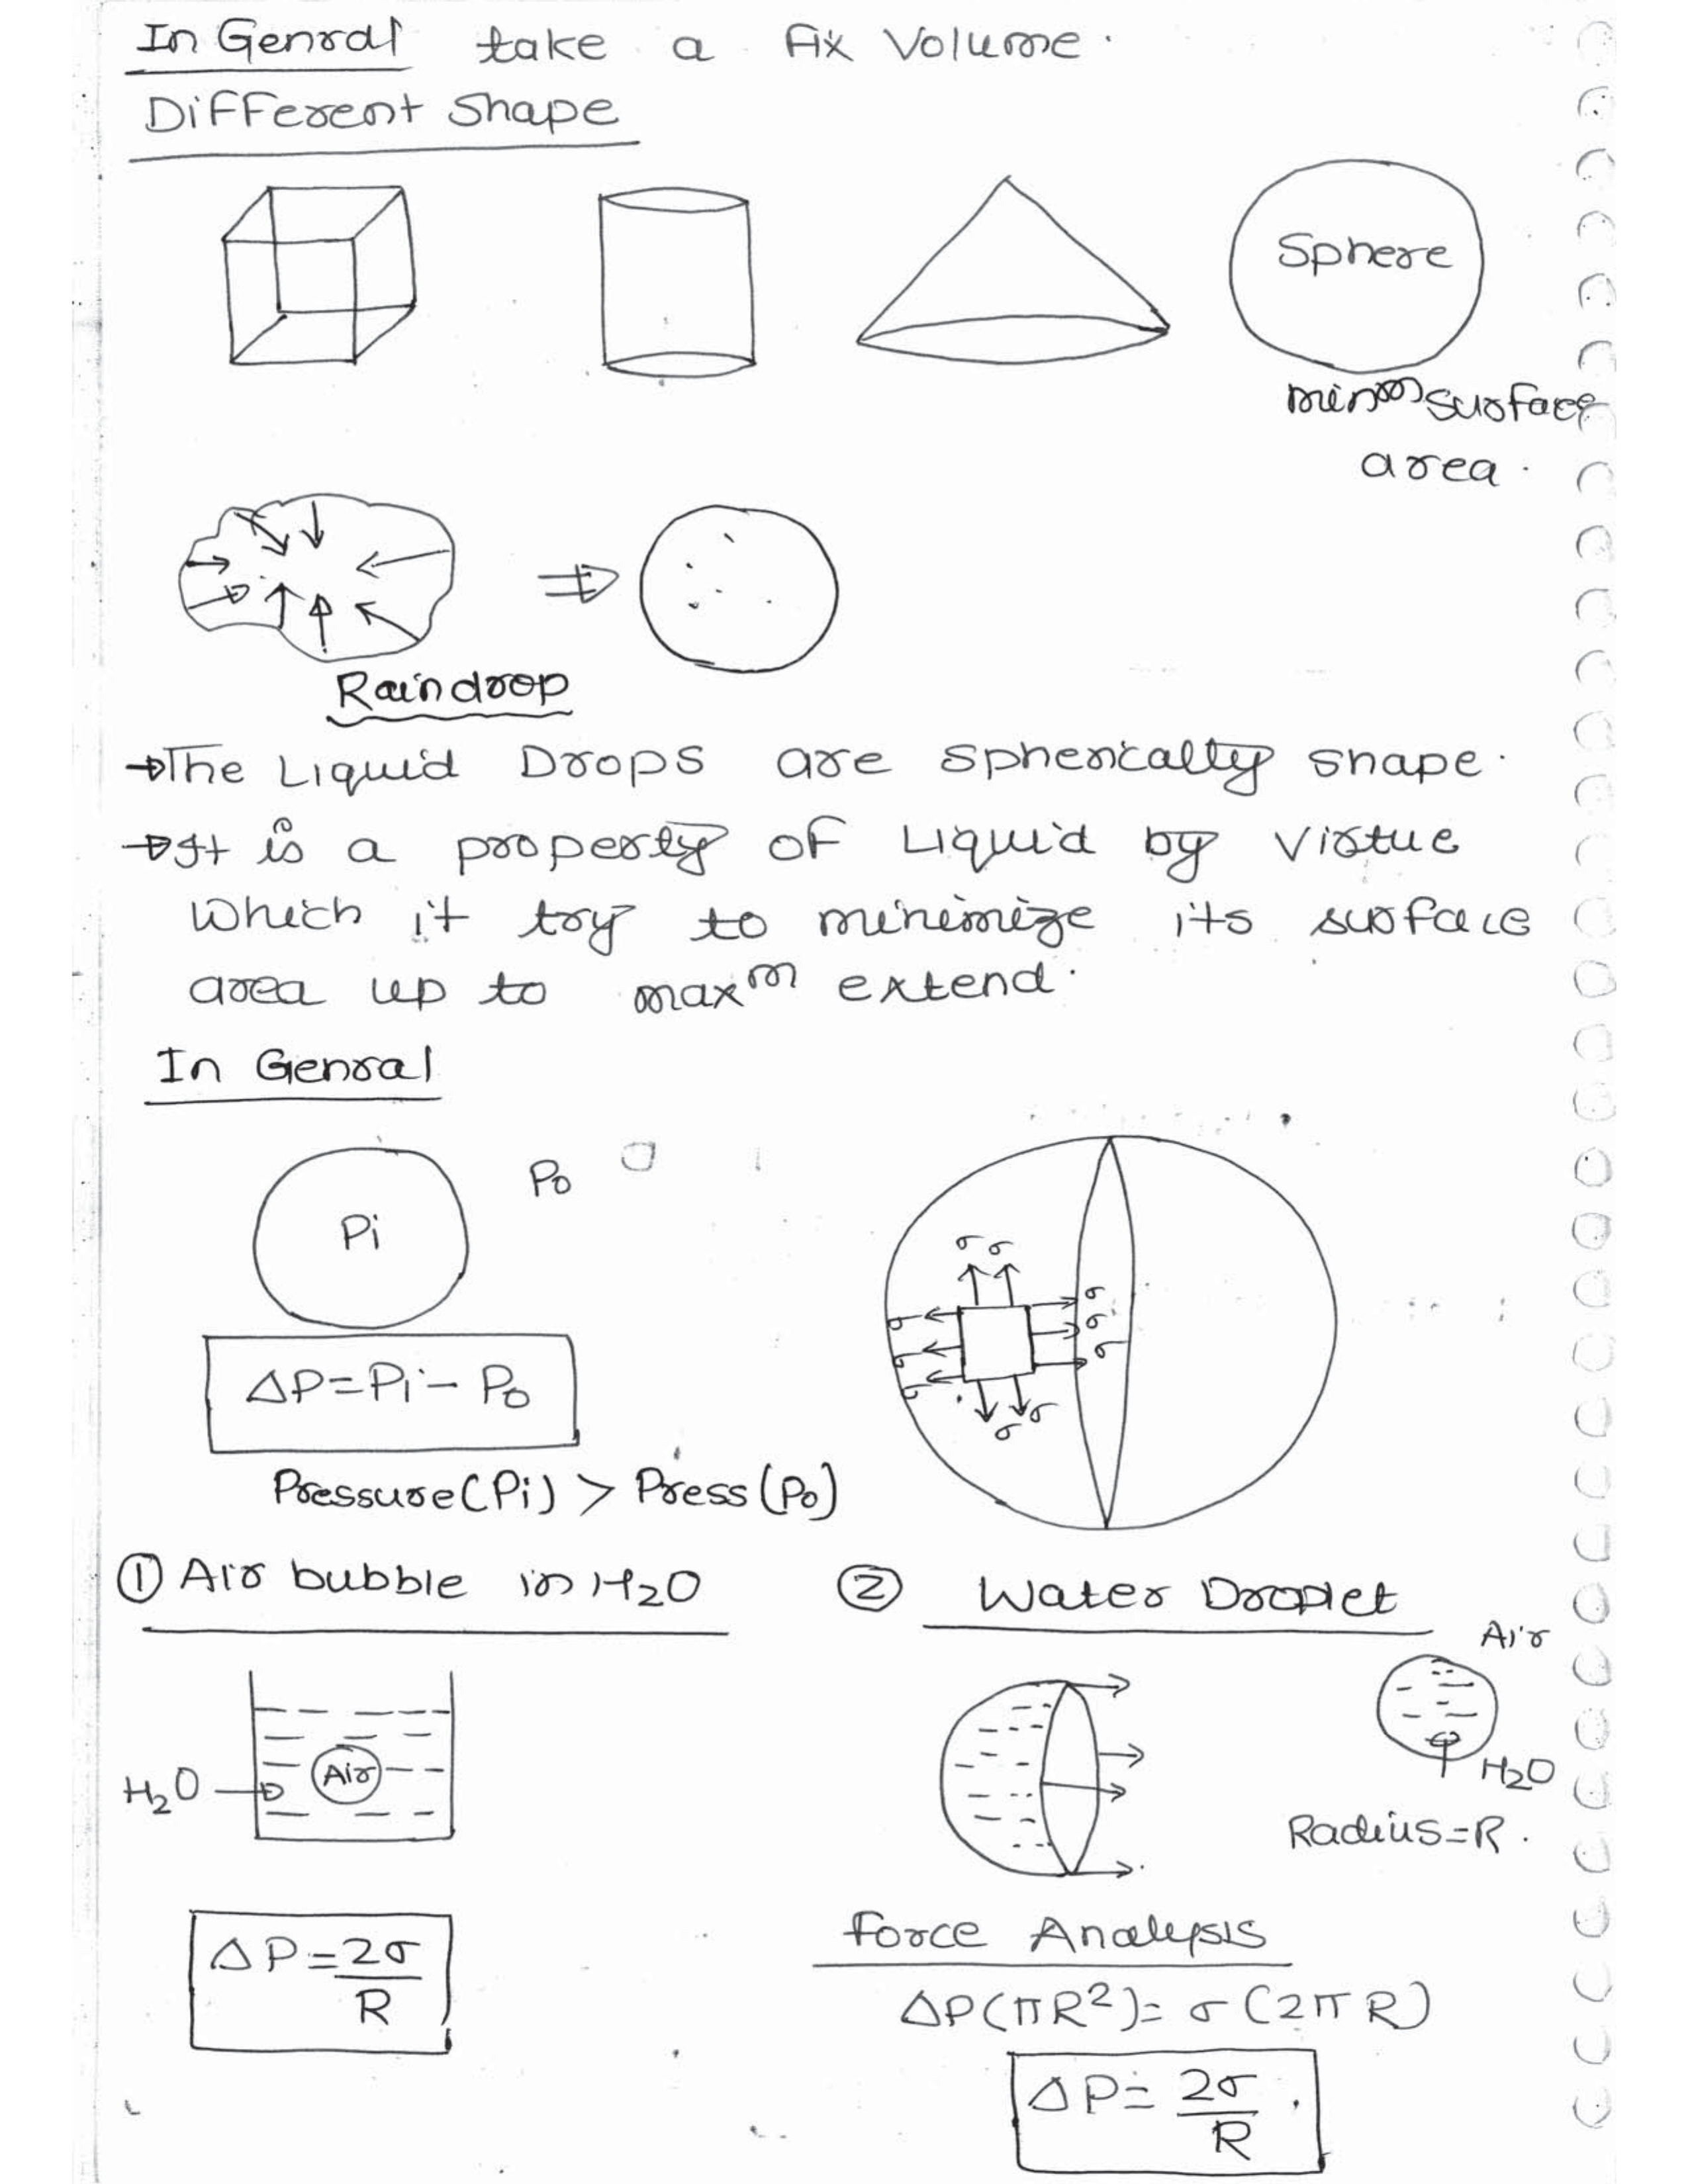 In Genral take a fix volume.
Different Shape
Sphere
minm surface
area.
Raindrop
→The Liquid Drops are spherically shape.
→It is a property of Liquid by virtue
which it try to minimize its surface
area up to maxm extend.
In Genral
Pi
Po
σ σ
σ
σ
σ
σ
σ
σ
σ
σ
ΔP=Pi-Po
Pressure(Pi) > Press(Po)
① Air bubble in H2O
② Water Droplet
Air
Air
H2O
H2O
Radius=R.
ΔP=2σ/R
Force Analysis
ΔP(πR²)= σ(2πR)
ΔP= 2σ/R.